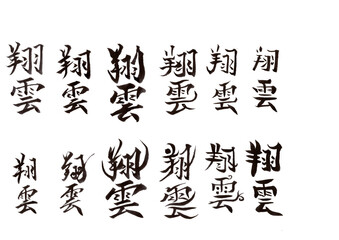 翔雲 翔雲 翔雲 翔雲 翔雲 翔雲
翔雲 翔雲 翔雲 翔雲 翔雲 翔雲